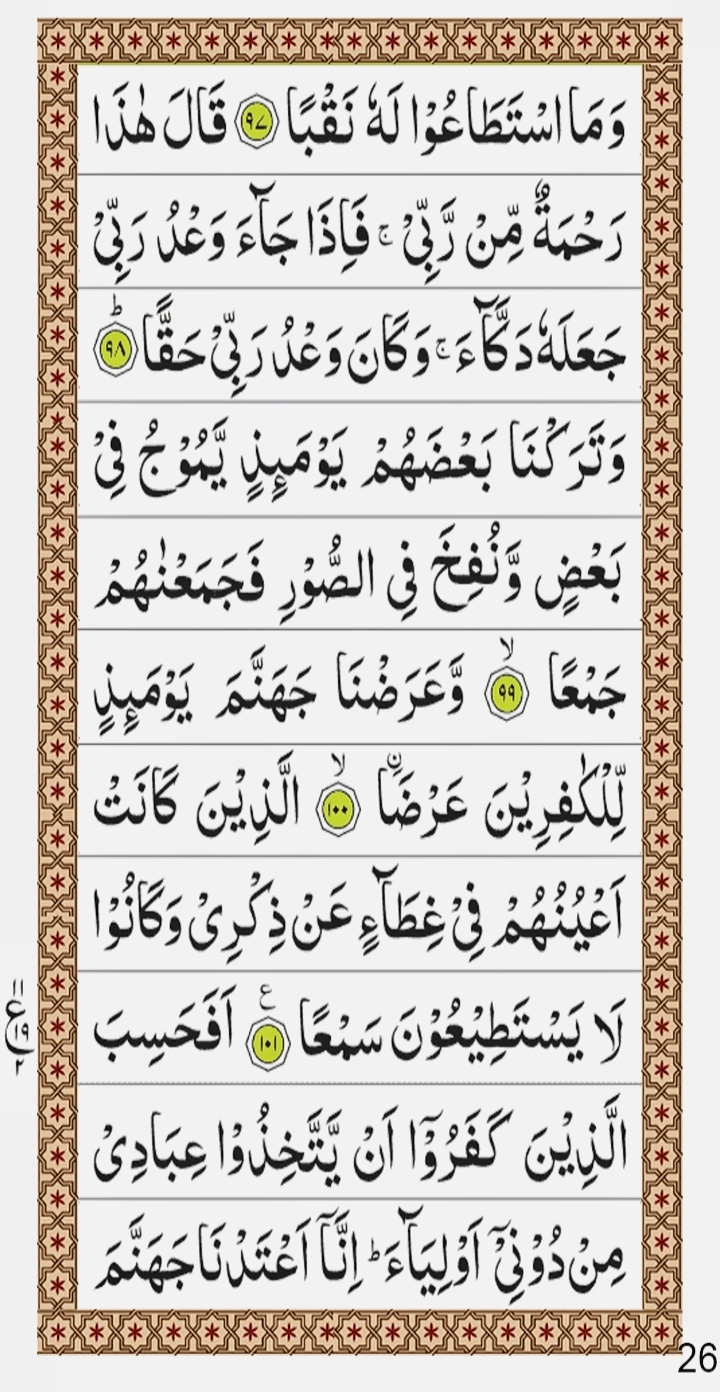 وَمَا اسْتَطَاعُوْا لَهٗ نَقْبًا ﴿۹۷﴾ قَالَ هٰذَا
رَحْمَةٌ مِّنْ رَّبِّیْ ۚ فَاِذَا جَآءَ وَعْدُ رَبِّیْ
جَعَلَهٗ دَكَّآءَ ۚ وَكَانَ وَعْدُ رَبِّیْ حَقًّا ؕ ﴿۹۸﴾
وَتَرَكْنَا بَعْضَهُمْ یَوْمَىِٕذٍ یَّمُوْجُ فِیْ
بَعْضٍ وَّنُفِخَ فِی الصُّوْرِ فَجَمَعْنٰهُمْ
جَمْعًا ۙ ﴿۹۹﴾ وَّعَرَضْنَا جَهَنَّمَ یَوْمَىِٕذٍ
لِّلْكٰفِرِیْنَ عَرْضَا ۙ ﴿۱۰۰﴾ الَّذِیْنَ كَانَتْ
اَعْیُنُهُمْ فِیْ غِطَآءٍ عَنْ ذِكْرِیْ وَكَانُوْا
لَا یَسْتَطِیْعُوْنَ سَمْعًا ﴿۱۰۱﴾ ع اَفَحَسِبَ
۱۱ ع ۱۹ ۲
الَّذِیْنَ كَفَرُوْۤا اَنْ یَّتَّخِذُوْا عِبَادِیْ
مِنْ دُوْنِیْۤ اَوْلِیَآءَ ؕ اِنَّاۤ اَعْتَدْنَا جَهَنَّمَ
26